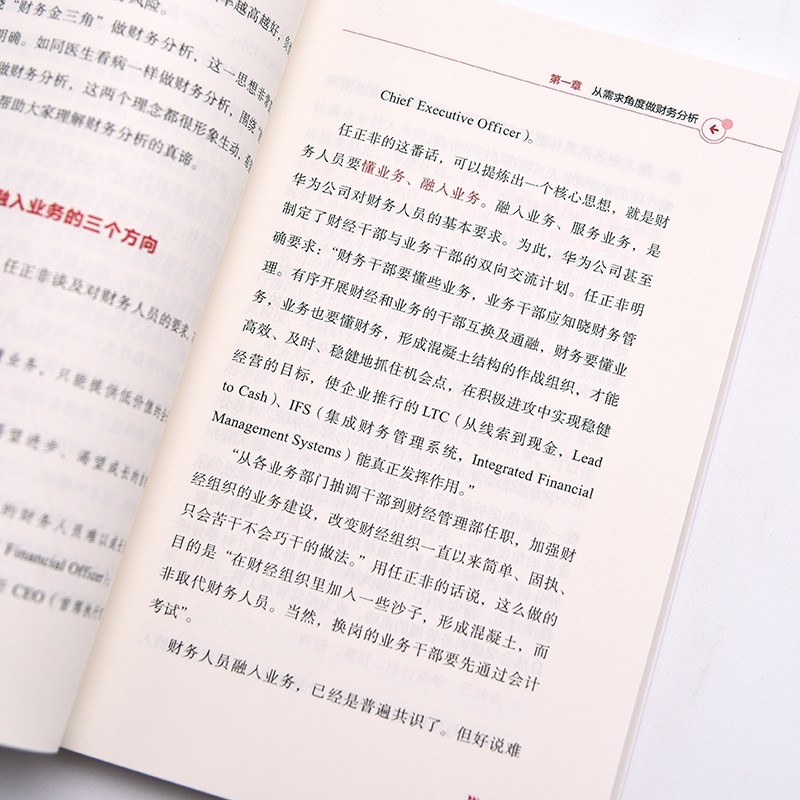 风险。
年越高越好，负
“财务金三角”做财务分析，这一思想非常
明确。如同医生看病一样做财务分析，围绕“
做财务分析，这两个理念都很形象生动，能
帮助大家理解财务分析的真谛。
融入业务的三个方向
任正非谈及对财务人员的要求，
业务，只能提供低价值的会
望进步、渴望成长的
的财务人员难以
Financial Officer）
CEO（首席执行
第一章 从需求角度做财务分析
Chief Executive Officer）。
任正非的这番话，可以提炼出一个核心思想，就是财
务人员要懂业务、融入业务。融入业务、服务业务，是
华为公司对财务人员的基本要求。为此，华为公司甚至
制定了财经干部与业务干部的双向交流计划。任正非明
确要求：“财务干部要懂些业务，业务干部应知晓财务管
理。有序开展财经和业务的干部互换及通融，财务要懂业
务，业务也要懂财务，形成混凝土结构的作战组织，才能
高效、及时、稳健地抓住机会点，在积极进攻中实现稳健
经营的目标，使企业推行的 LTC（从线索到现金，Lead
to Cash）、IFS（集成财务管理系统，Integrated Financial
Management Systems）能真正发挥作用。”
“从各业务部门抽调干部到财经管理部任职，加强财
经组织的业务建设，改变财经组织一直以来简单、固执、
只会苦干不会巧干的做法。”用任正非的话说，这么做的
目的是“在财经组织里加入一些沙子，形成混凝土，而
非取代财务人员。当然，换岗的业务干部要先通过会计
考试”。
财务人员融入业务，已经是普遍共识了。但好说难